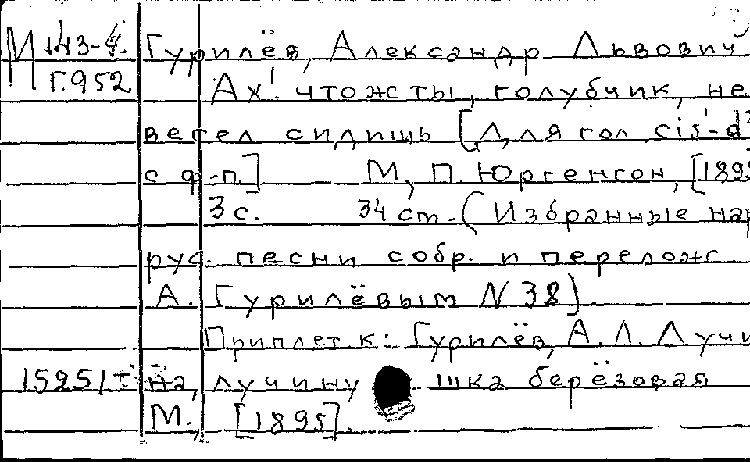 М 143-4. Гурилёв, Александр Львович
Г.952 Ах! что ж ты, голубчик, не
весел сидишь [Для гол. cis'-d²
с ф.-п.] М., П. Юргенсон, [1895
3 с. 34 ст. (Избранные нар
рус. песни собр. и перелож
А. Гурилёвым N 38).
Приплет к: Гурилёв, А. Л. Лучи
15251 на, лучину шка берёзовая
М., [1895].